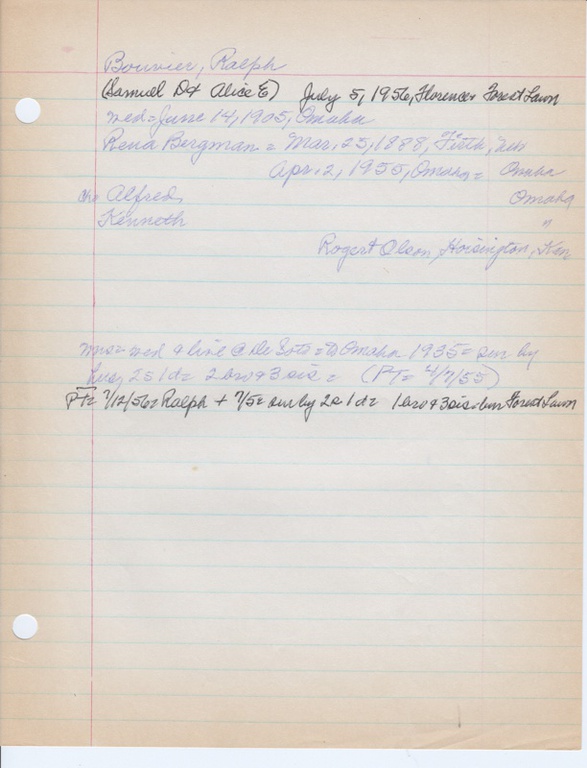 Bouvier, Ralph
(Samuel D + Alice E) July 5, 1956, Florence + Forest Lawn
med = June 14, 1905, Omaha
Rena Bergman = Mar. 25, 1888, Firth, Neb
Apr. 2, 1955, Omaha = Omaha
ch = Alfred Omaha
Kenneth "
Rogert Olson, Hoisington, Kan
mrs = med + live @ De Soto = to Omaha 1935 = sur by
hus, 2s 1d = 2 bro + 3 sis = (PT = 4/7/55)
PT = 7/12/56 = Ralph + 7/5 = sur by 2s 1d = 1 bro + 3 sis = bur Forest Lawn